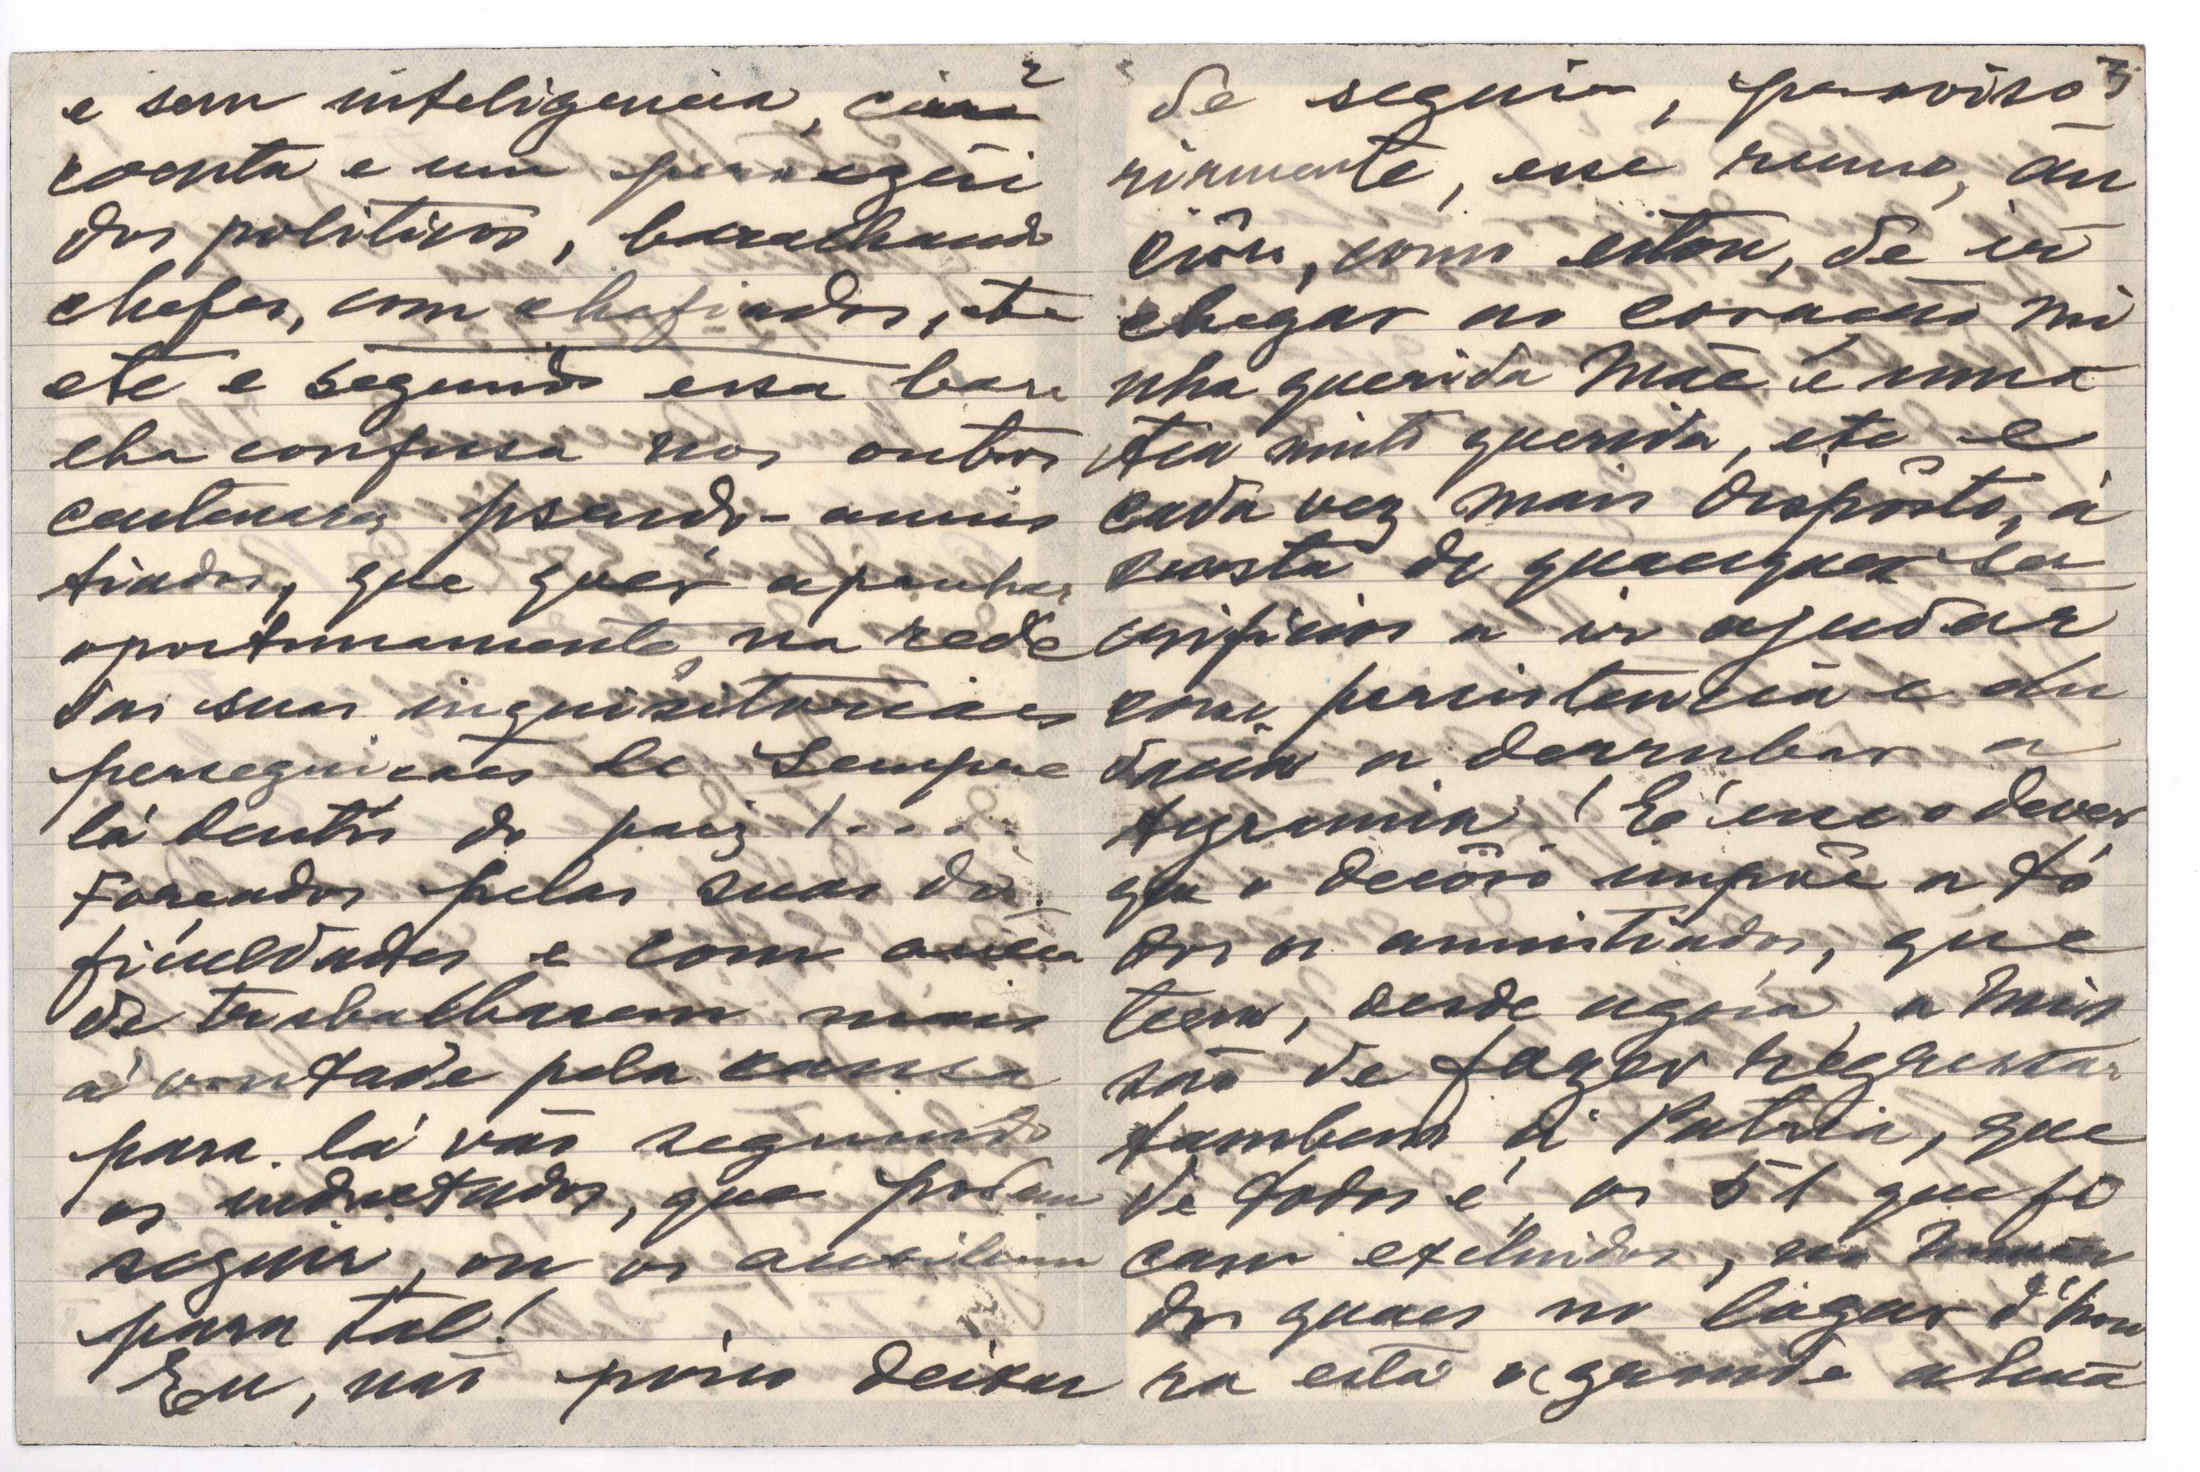 2
e sem inteligencia, cin
coenta e um persegui
dos politicos, baralhando
chefes, com chefiados, etc
etc e segundo essa bara
lha confusa nos outros
centenares pseudo-amnis
tiados, que quer apanhar
oportunamente, na rede
das suas inquisitoriaes
perseguicões de sempre
lá dentro do paiz!....
Forçados pelas suas di
ficuldades e com
de trabalharem mais
á vontade pela causa
para lá vão seguindo
os indultados, que podem
seguir, ou os auxiliam
para tal!
Eu, não posso deixar
3
de seguir, proviso
riamente, esse rumo, an
cioso, como estou, de ir
chegar ao coração mi
nha querida Mãe e uma
tia muito querida, etc e
cada vez mais disposto, á
custa de quaesquer sa
crificios a ir ajudar
com persistencia e au
dacia a derrubar a
tyrannia! É esse o dever
que o decôro impõe a tó
dos os amnistiados, que
teem, desde agora, a mis
são de fazer regressar
tambem á Patria, que
de todos é, os 51 que fi
cam excluidos, no numero
dos quaes no logar d'hon
ra está a grande alma